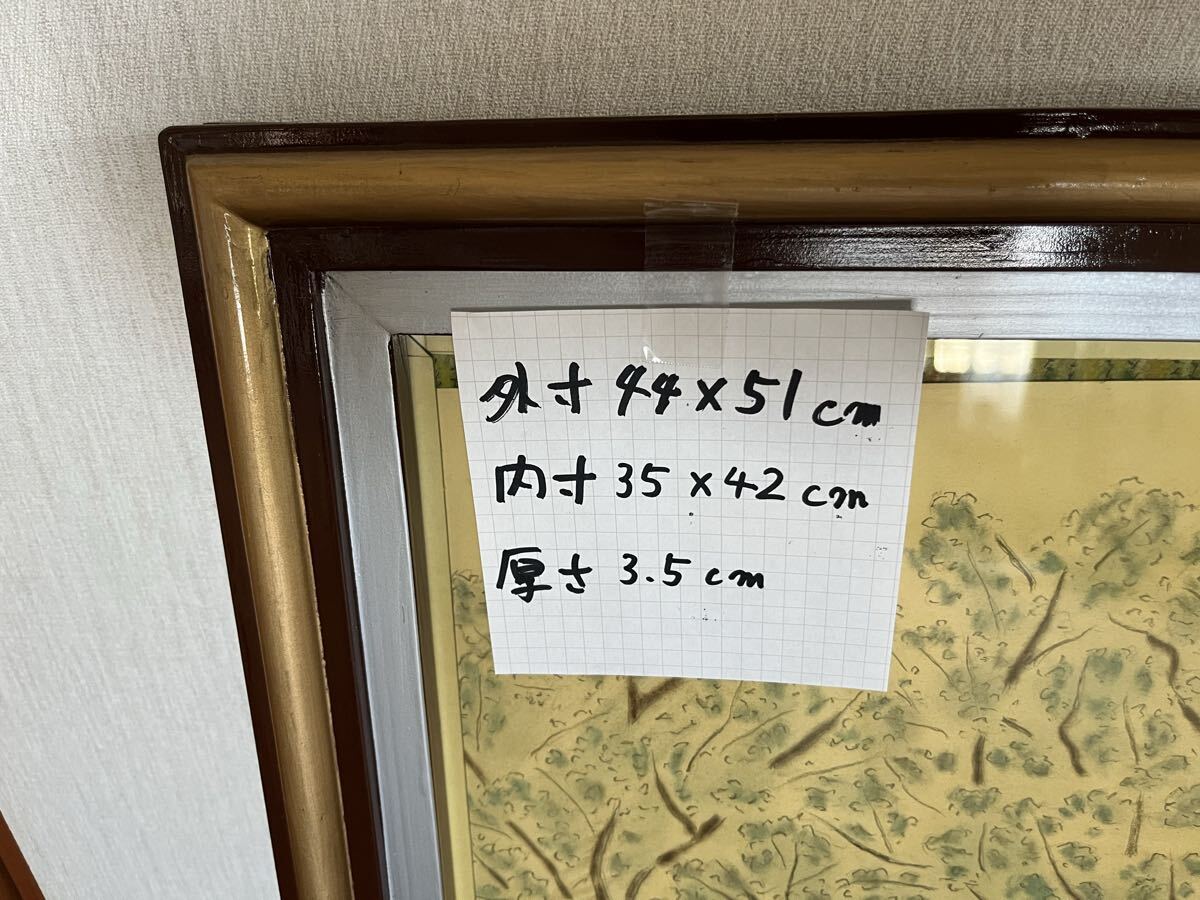 外寸 44×51cm
内寸 35×42cm
厚さ 3.5cm